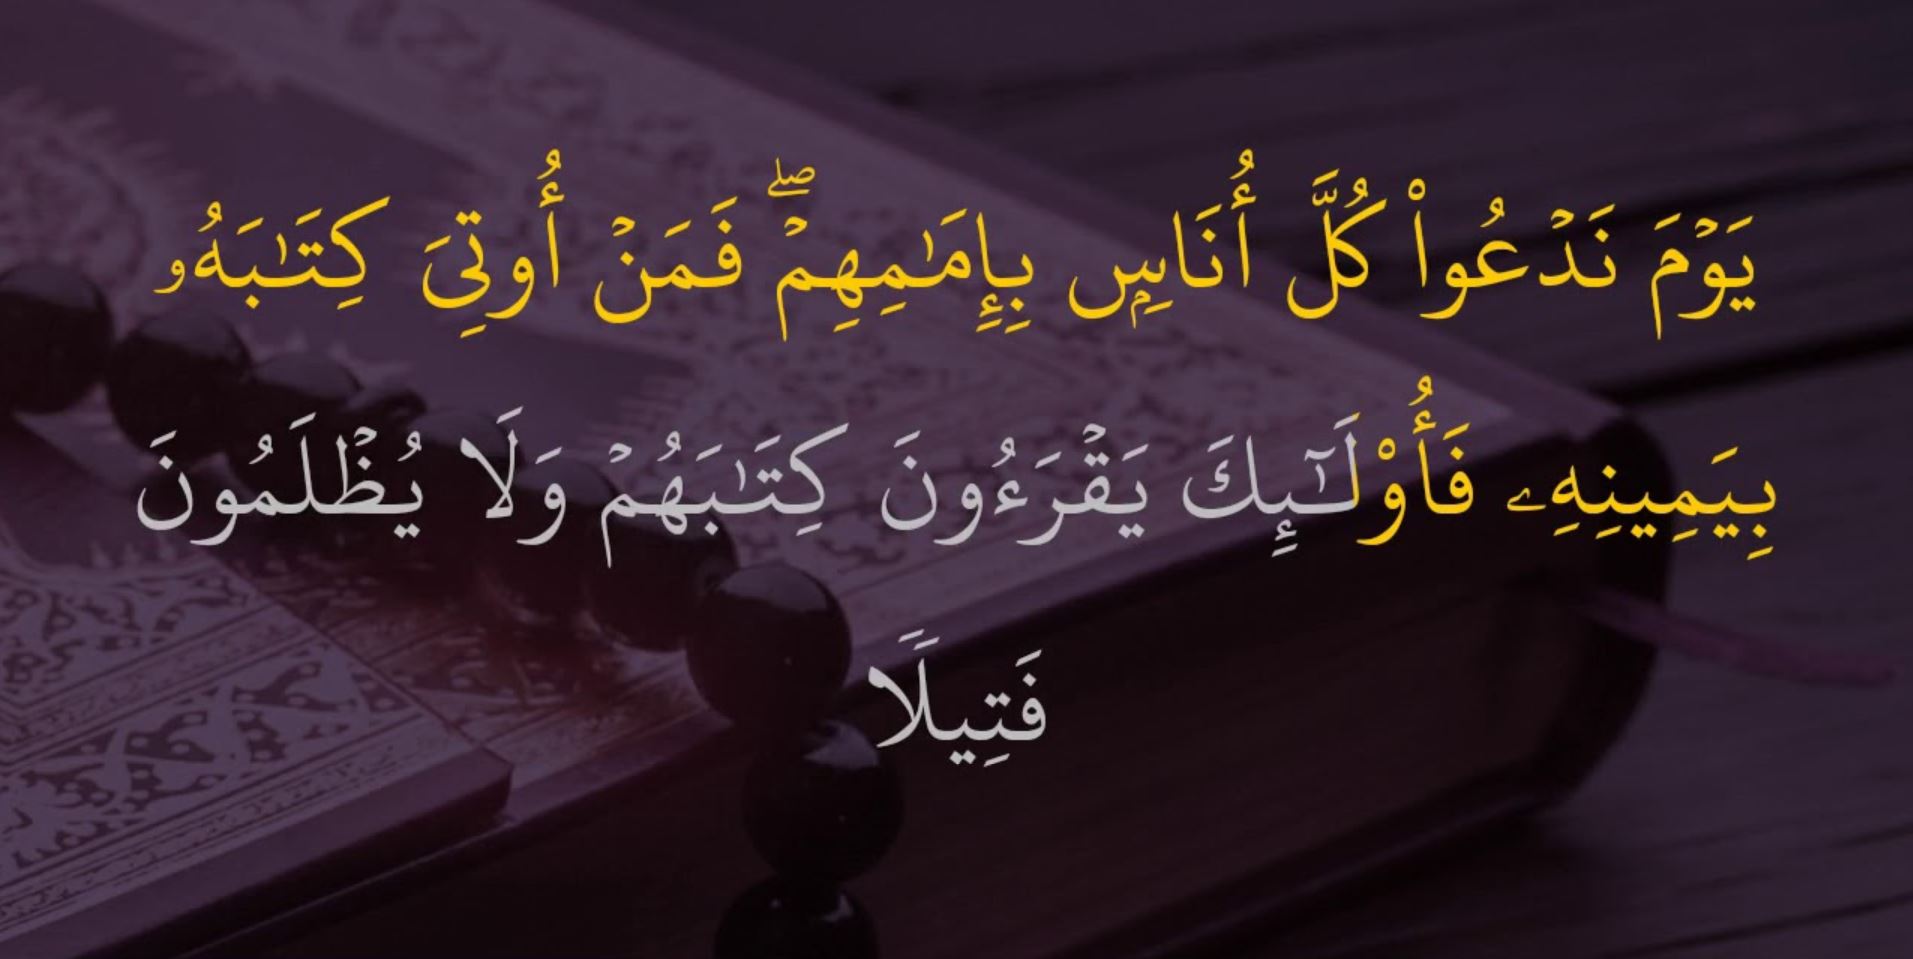 يَوْمَ نَدْعُوا۟ كُلَّ أُنَاسٍۭ بِإِمَـٰمِهِمْ ۖ فَمَنْ أُوتِىَ كِتَـٰبَهُۥ
بِيَمِينِهِۦ فَأُو۟لَـٰٓئِكَ يَقْرَءُونَ كِتَـٰبَهُمْ وَلَا يُظْلَمُونَ
فَتِيلًا